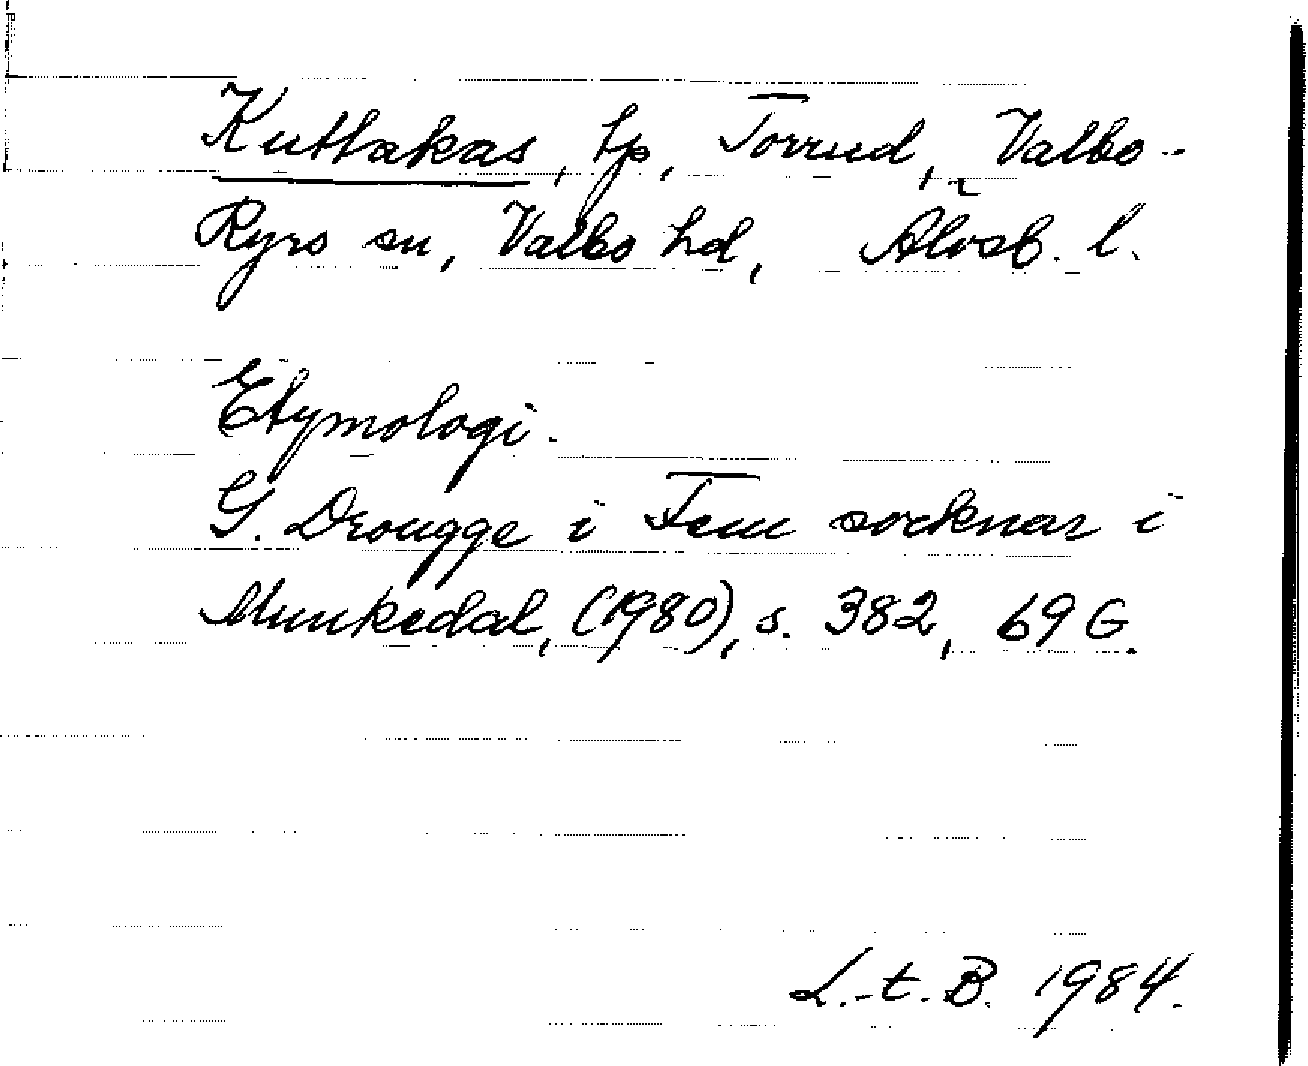 Kuttakas, tp, Torrud, Valbo-
Ryrs sn, Valbo hd, Älvsb. l.
Etymologi.
G. Drougge i Fem socknar i
Munkedal, (1980), s. 382, 69 G.
L.-t. B. 1984.